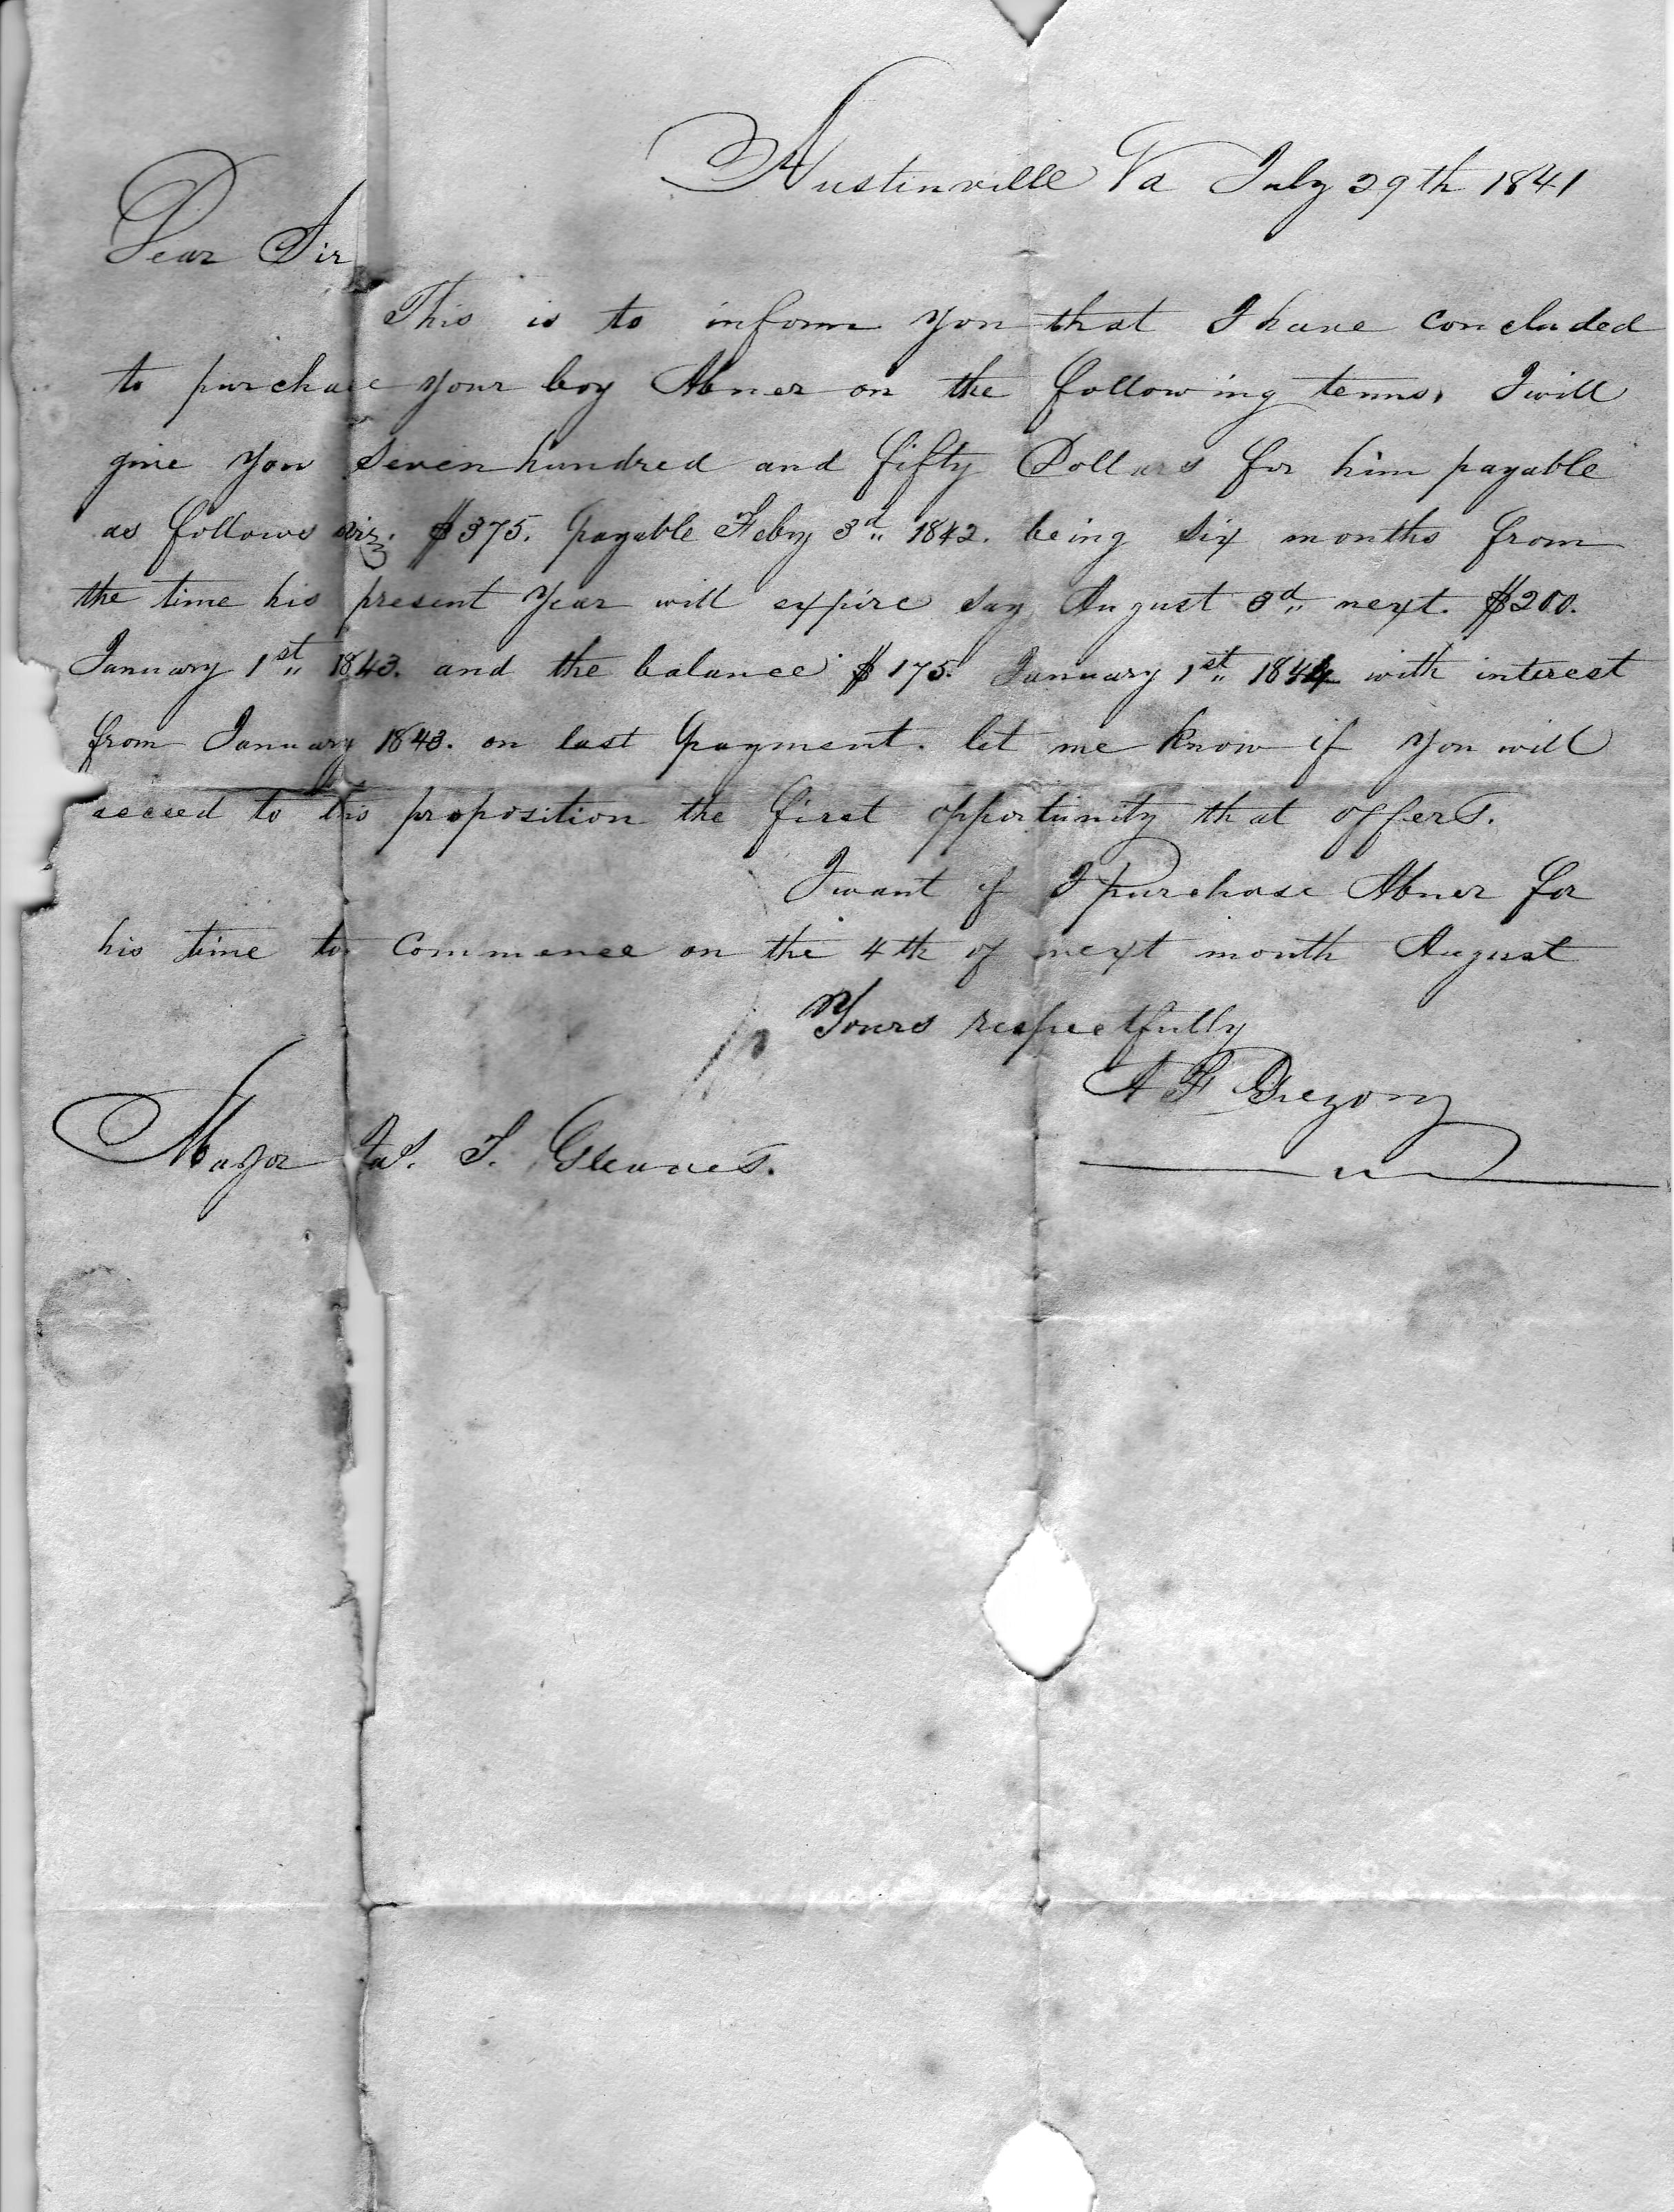 Austinville Va July 29th 1841
Dear Sir
This is to inform you that I have concluded
to purchase your boy Abner on the following terms, I will
give you Seven hundred and fifty Dollars for him payable
as follows viz. $375. payable Feby 3d 1842. being six months from
the time his present year will expire say August 3d next. $200.
January 1st 1843. and the balance $175. January 1st 1844 with interest
from January 1843. on last payment. let me know if you will
acceed to this proposition the first opportunity that offers.
I want if I purchase Abner for
his time to commence on the 4th of next month August
Yours respectfully
A F Gregory
Major Jas. T. Gleaves.